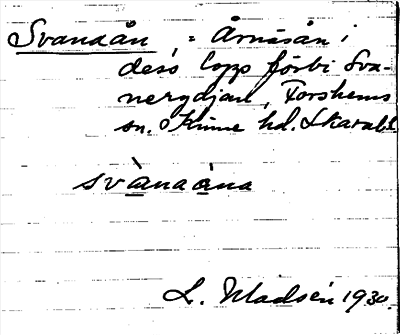 Svanaån, = Årnäsån i
dess lopp förbi Sva-
nergdjan, Forshems
sn. Kinne hd. Skarab.l.
svànaåna
L. Madsén 1930.